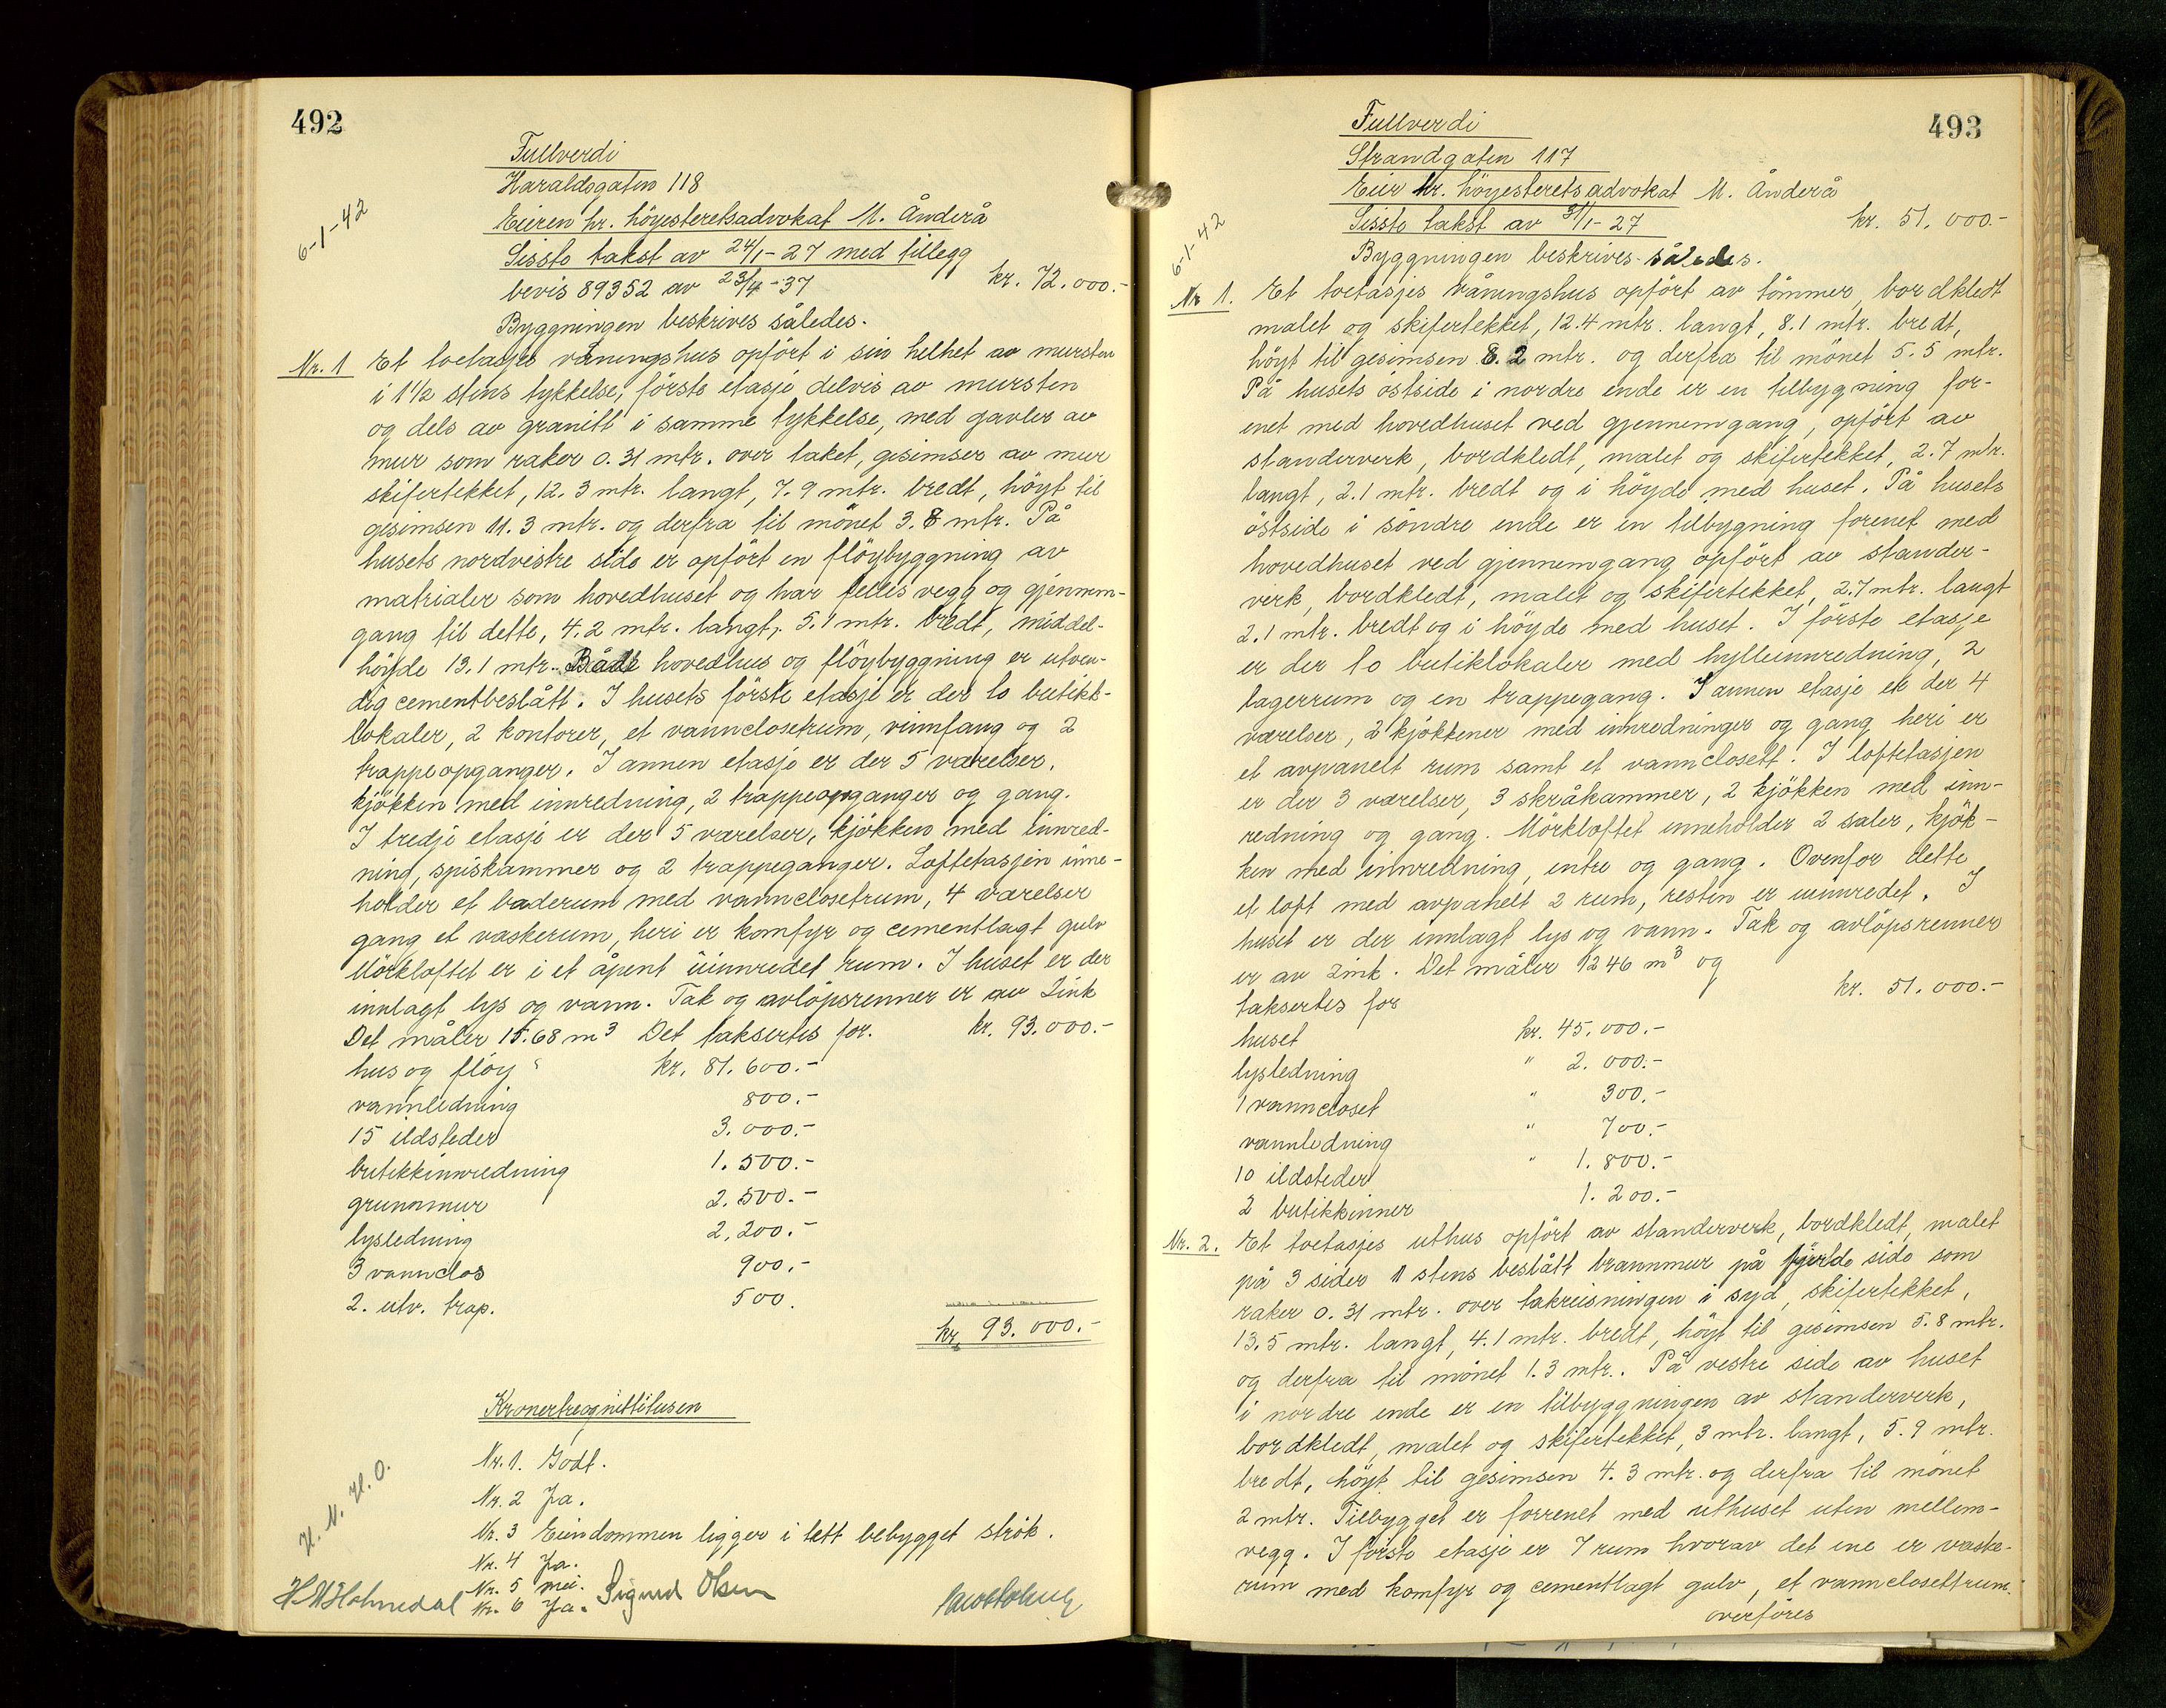 492
Fullverdi
Haraldsgaten 118
6-1-42
Eieren hr. höyesteretsadvokat M. Ånderå
Sisste takst av 24/1-27 med tillegg
bevis 89352 av 23/4-37 kr. 72.000.-
Byggningen beskrives således.
Nr. 1 Et toetasjes våningshus opfört i sin helhet av mursten
i 1½ stens tykkelse, förste etasje delvis av mursten
og dels av granitt i samme tykkelse, med gavler av
mur som raker 0.31 mtr. over taket, gesimser av mur
skifertekket, 12.3 mtr. langt, 7.9 mtr. bredt, höyt til
gesimsen 11.3 mtr. og derfra til mönet 3.8 mtr. På
husets nordvestre side er opfört en flöybyggning av
matrialer som hovedhuset og har felles vegg og gjennem-
gang til dette, 4.2 mtr. langt, 5.1 mtr. bredt, middel-
höyde 13.1 mtr. Både hovedhus og flöybyggning er utven-
dig cementbeslått. I husets förste etasje er der to butikk-
lokaler, 2 kontorer, et vannclosetrum, vinnfang og 2
trappeopganger. I annen etasje er der 5 værelser,
kjökken med innredning, 2 trappeopganger og gang.
I tredje etasje er der 5 værelser, kjökken med innred-
ning, spiskammer og 2 trappeganger. Loftetasjen inne-
holder et baderum med vannclosetrum, 4 værelser
gang et vaskerum, heri er komfyr og cementlagt gulv
Mörkloftet er i et åpent uinnredet rum. I huset er der
innlagt lys og vann. Tak og avlöpsrenner er av Zink
Det måler 15.68 m³ Det taksertes for. kr. 93.000.-
hus og flöy kr. 81.600.-
vannledning 800.-
15 ildsteder 3.000.-
butikkinnredning 1.500.-
grunnmur 2.500.-
lysledning 2,200.-
3 vannclos 900.-
2. utv. trap. 500.
kr. 93.000.-
Kronertreognittitusen
H. N. H. O.
Nr. 1. Godt.
Nr. 2 Ja.
Nr. 3 Eiendommen ligger i tett bebygget strök.
Nr. 4 Ja.
Nr. 5 nei.
Nr. 6 Ja.
Sigurd Olsen
493
Fullverdi
Strandgaten 117
Eier hr. höyesteretsadvokat M. Ånderå
6-1-42
Sisste takst av 31/1-27 kr. 51.000.-
Byggningen beskrives således.
Nr 1. Et toetasjes våningshus opfört av tömmer, bordkledt
malet og skifertekket, 12.4 mtr. langt, 8.1 mtr. bredt,
höyt til gesimsen 8.2 mtr. og derfra til mönet 5.5 mtr.
På husets östside i nordre ende er en tilbygning for-
enet med hovedhuset ved gjennemgang, opfört av
standerverk, bordkledt, malet og skifertekket, 2.7 mtr.
langt, 2.1 mtr. bredt og i höyde med huset. På husets
östside i söndre ende er en tilbygning forenet med
hovedhuset ved gjennemgang opfört av stander-
verk, bordkledt, malet og skifertekket, 2.7 mtr. langt
2.1 mtr. bredt og i höyde med huset. I förste etasje
er der to butiklokaler med hylleinnredning, 2
lagerrum og en trappegang. I annen etasje er der 4
værelser, 2 kjökkener med innredninger og gang heri er
et avpanelt rum samt et vanncloset. I loftetasjen
er der 3 værelser, 3 skråkammer, 2 kjökken med inn-
redning og gang. Mörkloftet inneholder 2 saler, kjök-
ken med innredning, entre og gang. Ovenfor dette
et loft med avpanelt 2 rum, resten er uinnredet. I
huset er der innlagt lys og vann. Tak og avlöpsrenner
er av Zink. Det måler 1246 m³ og
taksertes for kr. 51.000.-
huset kr. 45.000.-
lysledning " 2.000.-
1 vanncloset " 300.-
vannledning " 700.-
10 ildsteder " 1.800.-
2 butikkinner 1.200.-
Nr. 2. Et toetasjes uthus opfört av standerverk, bordkledt, malet
på 3 sider 1 stens beslått brannmur på fjerde side som
raker 0.31 mtr. over takreisningen i syd, skifertekket,
13.5 mtr. langt, 4.1 mtr. bredt, höyt til gesimsen 5.8 mtr.
og derfra til mönet 1.3 mtr.. På vestre side av huset
i nordre ende er en tilbyggningen av standerverk,
bordkledt, malet og skifertekket, 3 mtr. langt, 5.9 mtr.
bredt, höyt til gesimsen 4.3 mtr. og derfra til mönet
2 mtr. Tilbygget er forrenet med uthuset uten mellem-
vegg. I förste etasje er 7 rum hvorav det ene er vaske-
rum med komfyr og cementlagt gulv, et vannclosettrum.
overföres